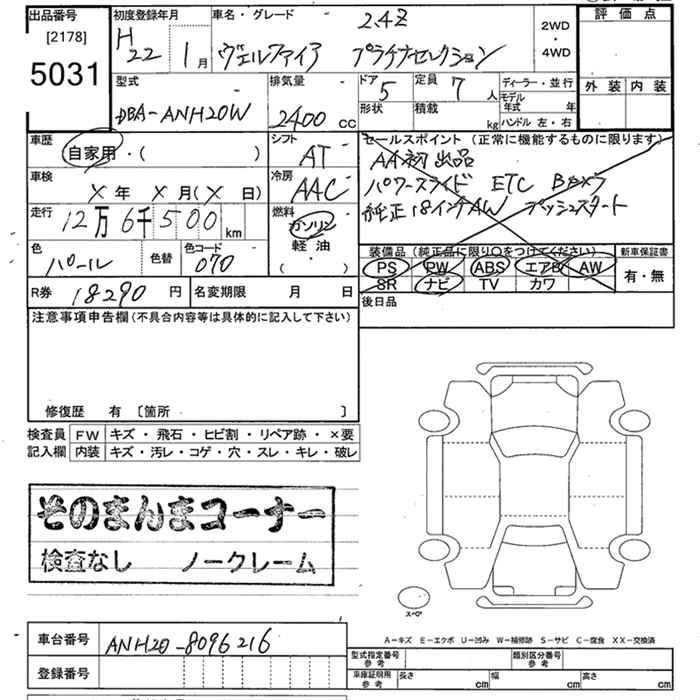 出品番号
[2178]
5031
初度登録年月
H 22 年 1 月
車名・グレード
2.4Z
ヴェルファイア プラチナセレクション
2WD
・
4WD
評価点
外装 内装
型式
DBA-ANH20W
排気量
2400 cc
ドア 5
形状
定員 7 人
積載 kg
ディーラー・並行
モデル年式 年
ハンドル 左・右
車歴
自家用・( )
シフト
AT
車検
X 年 X 月 (X 日)
冷房
AAC
走行
12万6千500 km
燃料
ガソリン
軽油
( ・ )
色
パール
色替
色コード
070
R券 18290 円
名変期限 月 日
セールスポイント (正常に機能するものに限ります)
AA初出品
パワースライド ETC Bカメラ
純正18インチAW プッシュスタート
装備品 (純正品に限り○をつけてください)
PS PW ABS エアB AW
SR ナビ TV カワ
新車保証書
有・無
後日品
注意事項申告欄 (不具合内容等は具体的に記入して下さい)
修復歴 有 〔箇所 〕
検査員記入欄
FW キズ・飛石・ヒビ割・リペア跡・×要
内装 キズ・汚レ・コゲ・穴・スレ・キレ・破レ
そのまんまコーナー
検査なし ノークレーム
スペア
A－キズ E－エクボ U－凹み W－補修跡 S－サビ C－腐食 XX－交換済
車台番号 ANH20-8096216
登録番号
型式指定番号 参考
類別区分番号 参考
車庫証明用 参考 長さ cm 幅 cm 高さ cm